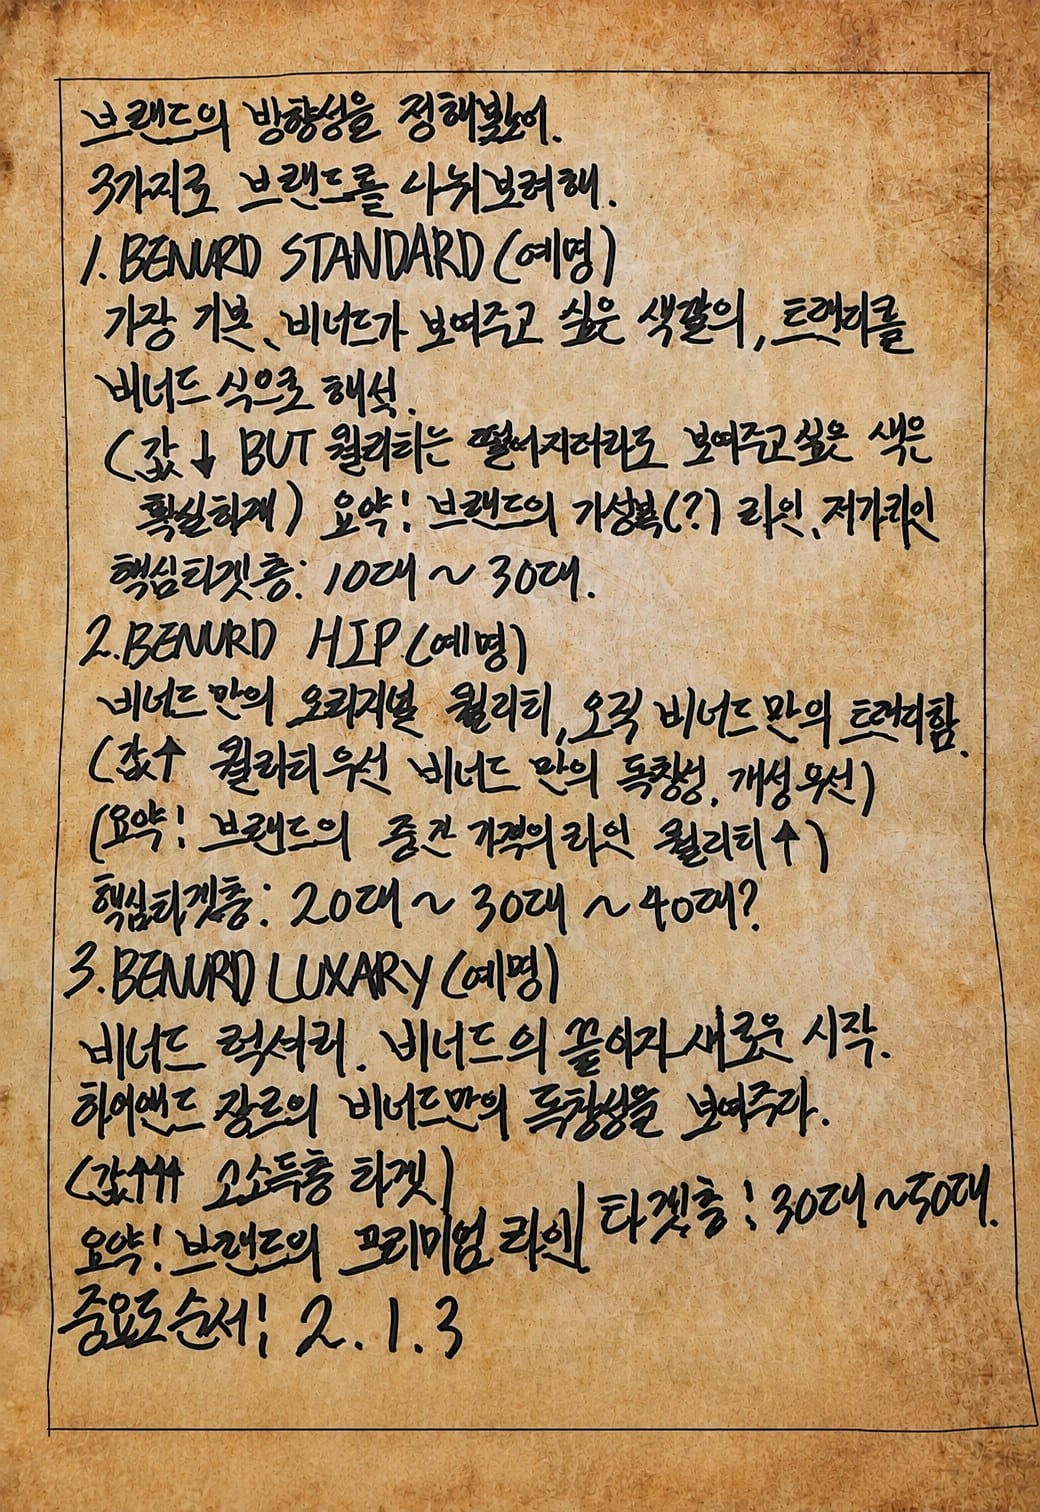 브랜드의 방향성을 정해봤어.
3가지로 브랜드를 나눠보려해.
1. BENURD STANDARD (예명)
가장 기본, 비너드가 보여주고 싶은 색깔의, 트랜디를
비너드 식으로 해석.
(값↓ BUT 퀄리티는 떨어지더라도 보여주고싶은 색은
확실하게) 요약! 브랜드의 기성복(?) 라인, 저가라인
핵심타겟층: 10대 ~ 30대.
2. BENURD HIP (예명)
비너드만의 오리지널 퀄리티, 오직 비너드만의 트랜디함.
(값↑ 퀄리티우선 비너드 만의 독창성, 개성우선)
(요약! 브랜드의 중간 가격의라인 퀄리티↑)
핵심타겟층: 20대 ~ 30대 ~ 40대?
3. BENURD LUXARY (예명)
비너드 럭셔리. 비너드의 끝이자 새로운 시작.
하이앤드 장르의 비너드만의 독창성을 보여주다.
(값↑↑↑ 고소득층 타겟)
요약! 브랜드의 프리미엄 라인| 타겟층! 30대~50대.
중요도순서! 2. 1. 3